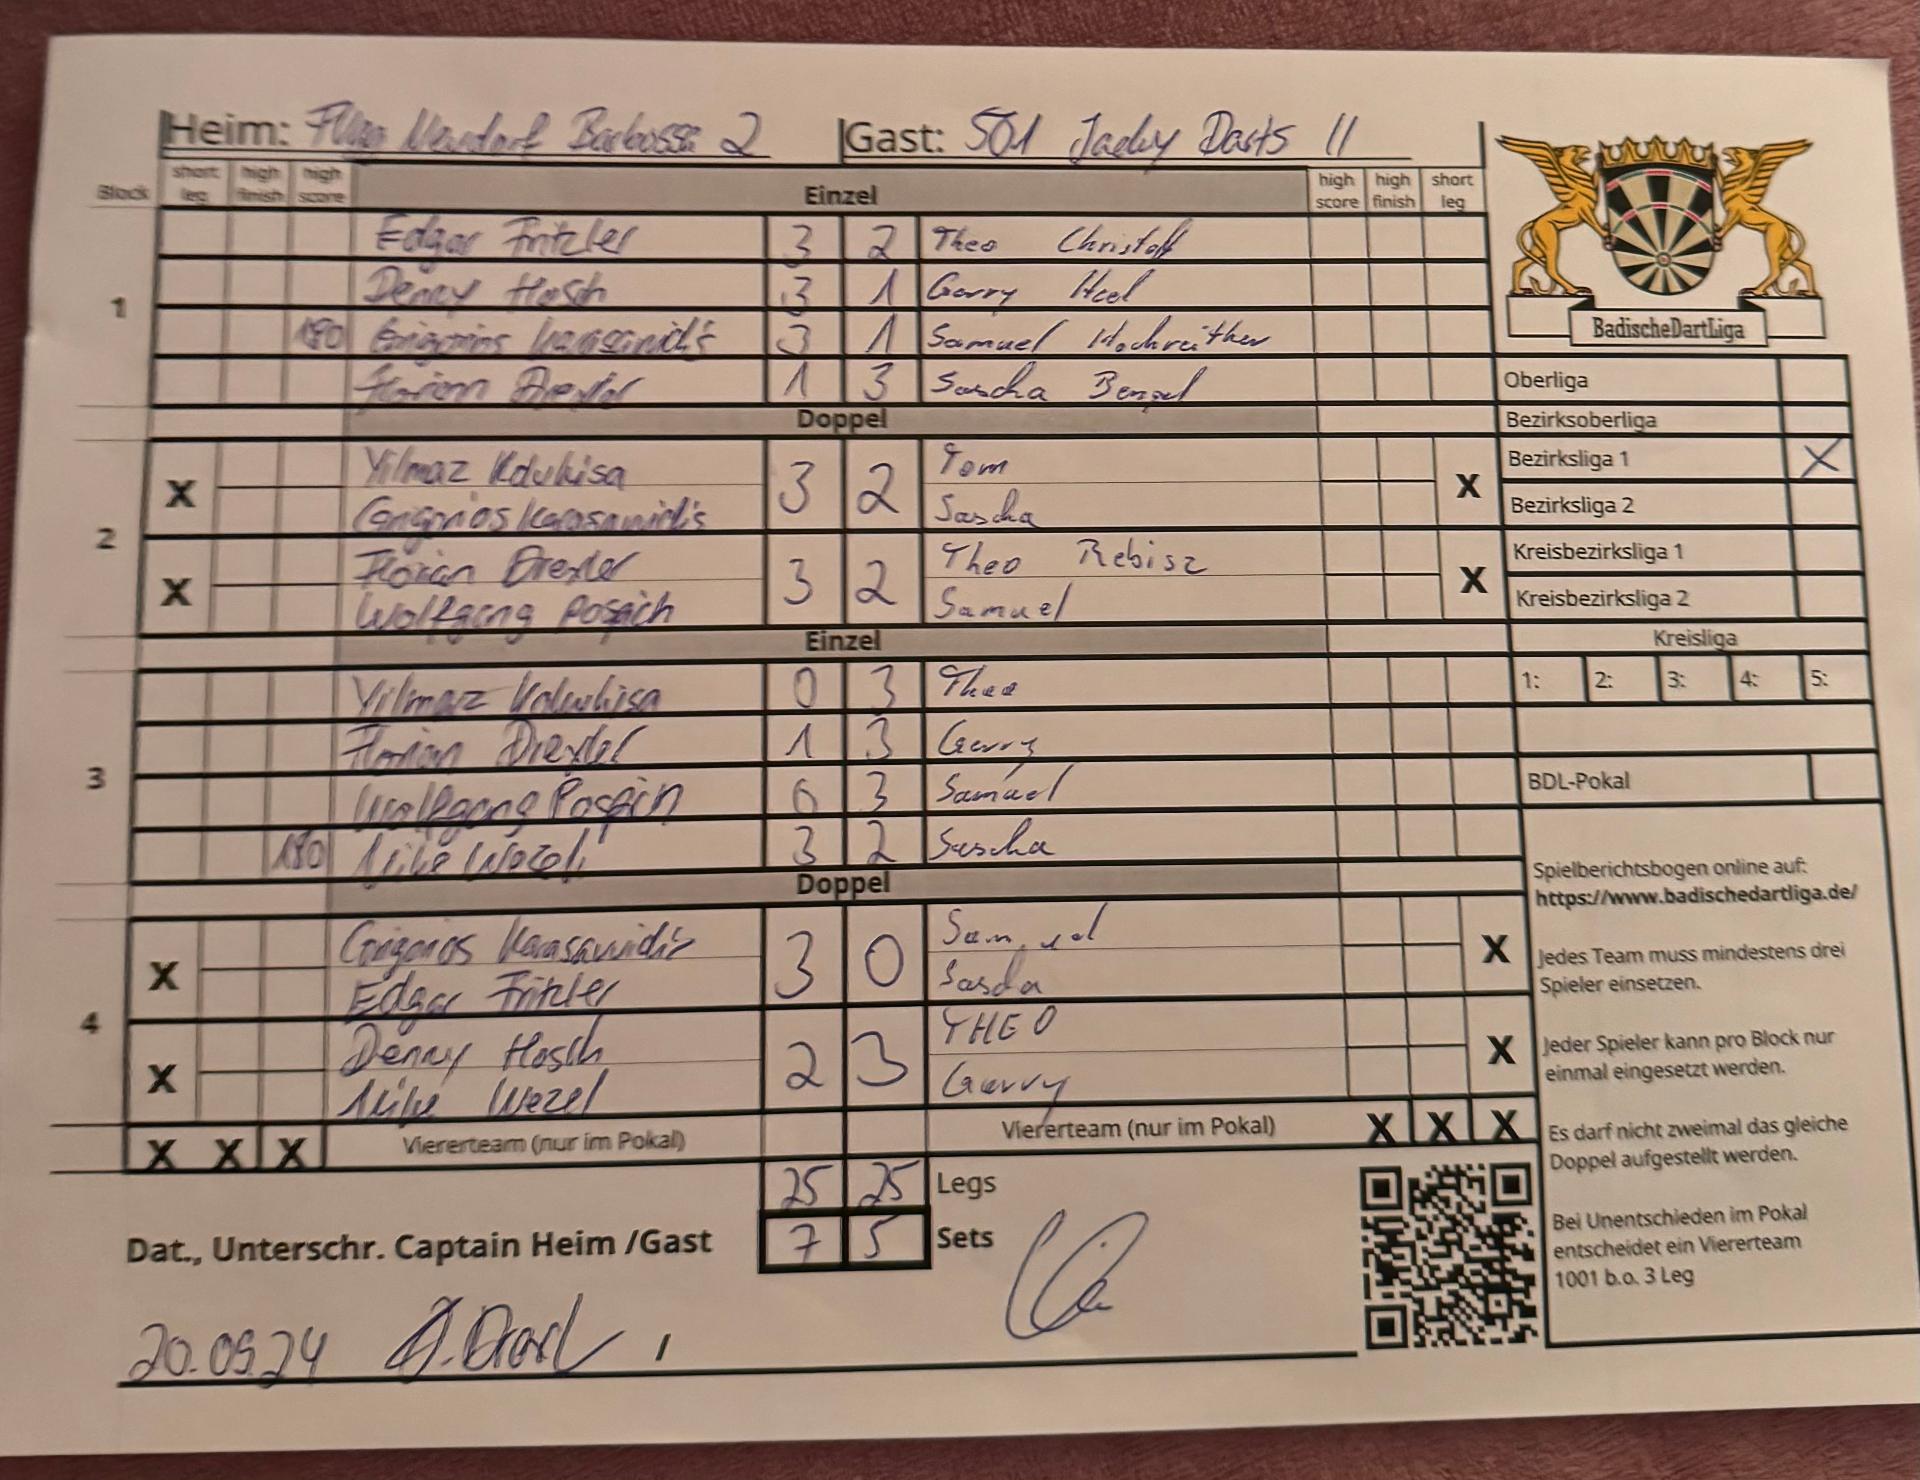 Heim: Neudorf Barbossa 2 Gast: 501 Jacky Darts II
Block short leg high finish high score Einzel high score high finish short leg
1
Edgar Fritzler 3 2 Theo Christoff
Denny Hosch 3 1 Garry
180 Grigorios Karasanidis 3 1 Samuel Hochreither
Florian Drexler 1 3 Sascha Benzel
Doppel
2
X Yilmaz 3 2 Tom X
Grigorios Karasanidis Sascha
X Florian Drexler 3 2 Theo Rebisz X
Wolfgang Samuel
Einzel
3
Yilmaz 0 3 Theo
Florian Drexler 1 3 Garry
Wolfgang 0 3 Samuel
180 Mike Wezel 3 2 Sascha
Doppel
4
X Grigorios Karasanidis 3 0 Samuel X
Edgar Fritzler Sascha
X Denny Hosch 2 3 THEO X
Mike Wezel Garry
X X X Viererteam (nur im Pokal) Viererteam (nur im Pokal) X X X
25 25 Legs
7 5 Sets
Dat., Unterschr. Captain Heim /Gast
20.09.24
BadischeDartLiga
Oberliga
Bezirksoberliga
Bezirksliga 1 X
Bezirksliga 2
Kreisbezirksliga 1
Kreisbezirksliga 2
Kreisliga
1: 2: 3: 4: 5:
BDL-Pokal
Spielberichtsbogen online auf:
https://www.badischedartliga.de/
Jedes Team muss mindestens drei
Spieler einsetzen.
Jeder Spieler kann pro Block nur
einmal eingesetzt werden.
Es darf nicht zweimal das gleiche
Doppel aufgestellt werden.
Bei Unentschieden im Pokal
entscheidet ein Viererteam
1001 b.o. 3 Leg